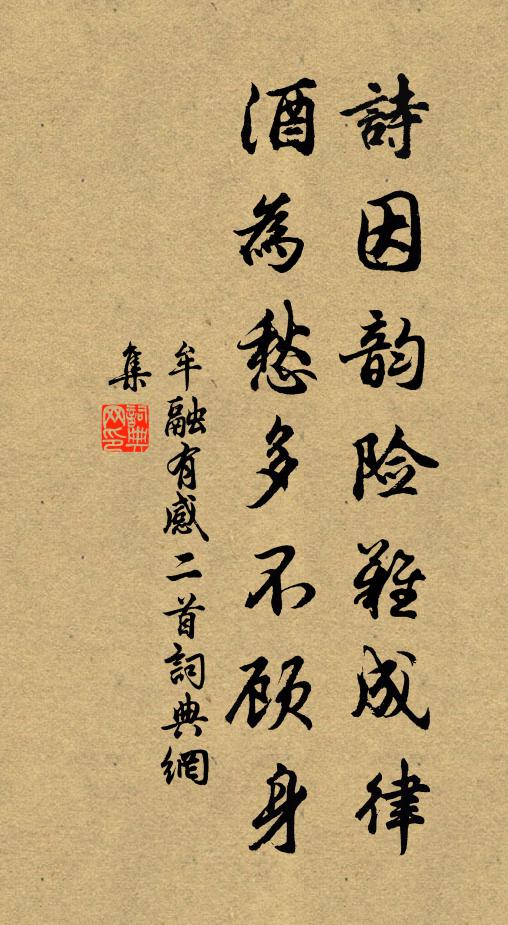 詩因韵险難成律
酒為愁多不顾身
牟融有感二首詞典網
集
詞典
网印